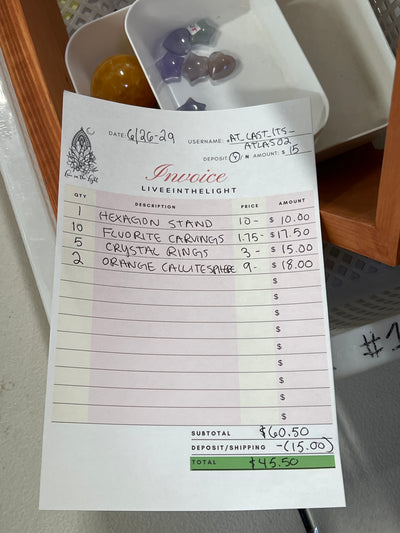 DATE: 6/26-29 USERNAME: AT_LAST_ITS_
ATLAS02
DEPOSIT: Y / N AMOUNT: $ 15
Live in the light
Invoice
LIVEEINTHELIGHT
QTY DESCRIPTION PRICE AMOUNT
1 HEXAGON STAND 10- $ 10.00
10 FLUORITE CARVINGS 1.75- $ 17.50
5 CRYSTAL RINGS 3- $ 15.00
2 ORANGE CALCITE SPHERE 9- $ 18.00
$
$
$
$
$
$
$
$
$
SUBTOTAL $60.50
DEPOSIT/SHIPPING -(15.00)
TOTAL $45.50
#1